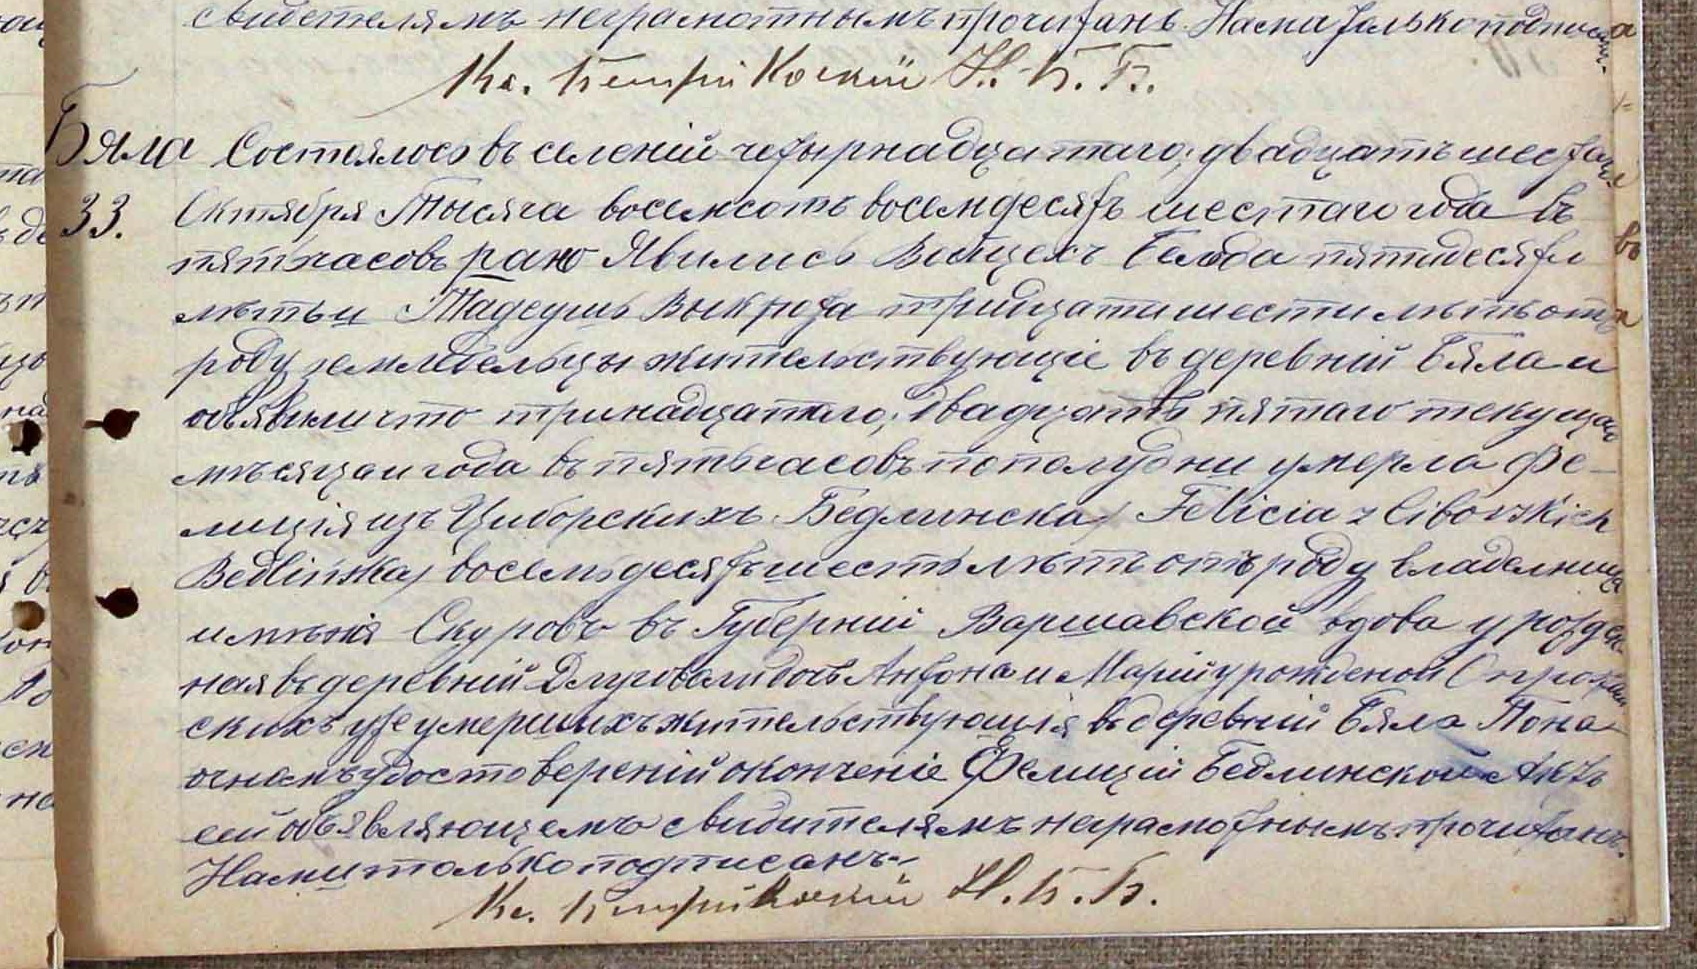 свидетелямъ неграмотнымъ прочитанъ. Нами только подписанъ.
Кс. Н. Б. Б.
Бяла Состоялось въ селеніи четырнадцатаго, двадцать шестаго
33. Октября Тысяча восемьсотъ восемдесятъ шестаго года въ
пять часовъ рано Явились Войцехъ пятидесяти
лѣтъ и Тадеушъ Выкрота тридцати шести лѣтъ отъ
роду земледельцы жительствующіе въ деревній Бяла и
объявили что тринадцатаго, двадцать пятаго текущаго
мѣсяца и года въ пять часовъ пополудни умерла Фе-
лиція изъ Циборскихъ Бедлинска, Felicia z Ciborskich
Bedlińska, восемьдесятъ шесть лѣтъ отъ роду владелница
имѣнія Скуровъ въ Губерній Варшавской вдова урожден-
ная въ деревній дочь Антона и Марій урожденой
скихъ уже умершихъ жительствующія въ деревній Бяла По на-
очномъ удостовереній окончаніе Фелицій Бедлинской Актъ
сей объявляющемъ свидителямъ неграмотнымъ прочитанъ.
Нами только подписанъ.
Кс. Н. Б. Б.